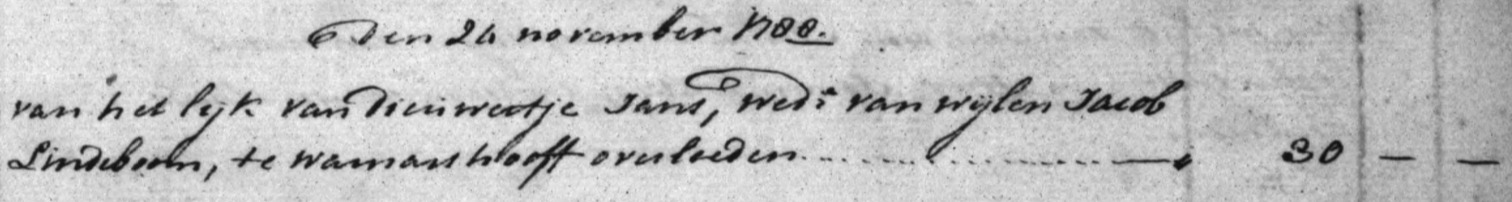 Den 24 november 1788.
van het lijk van Dieuwertje Jans, wed:e van wijlen Jacob
Lindeboom, te wamarshooff overleeden 30 — —